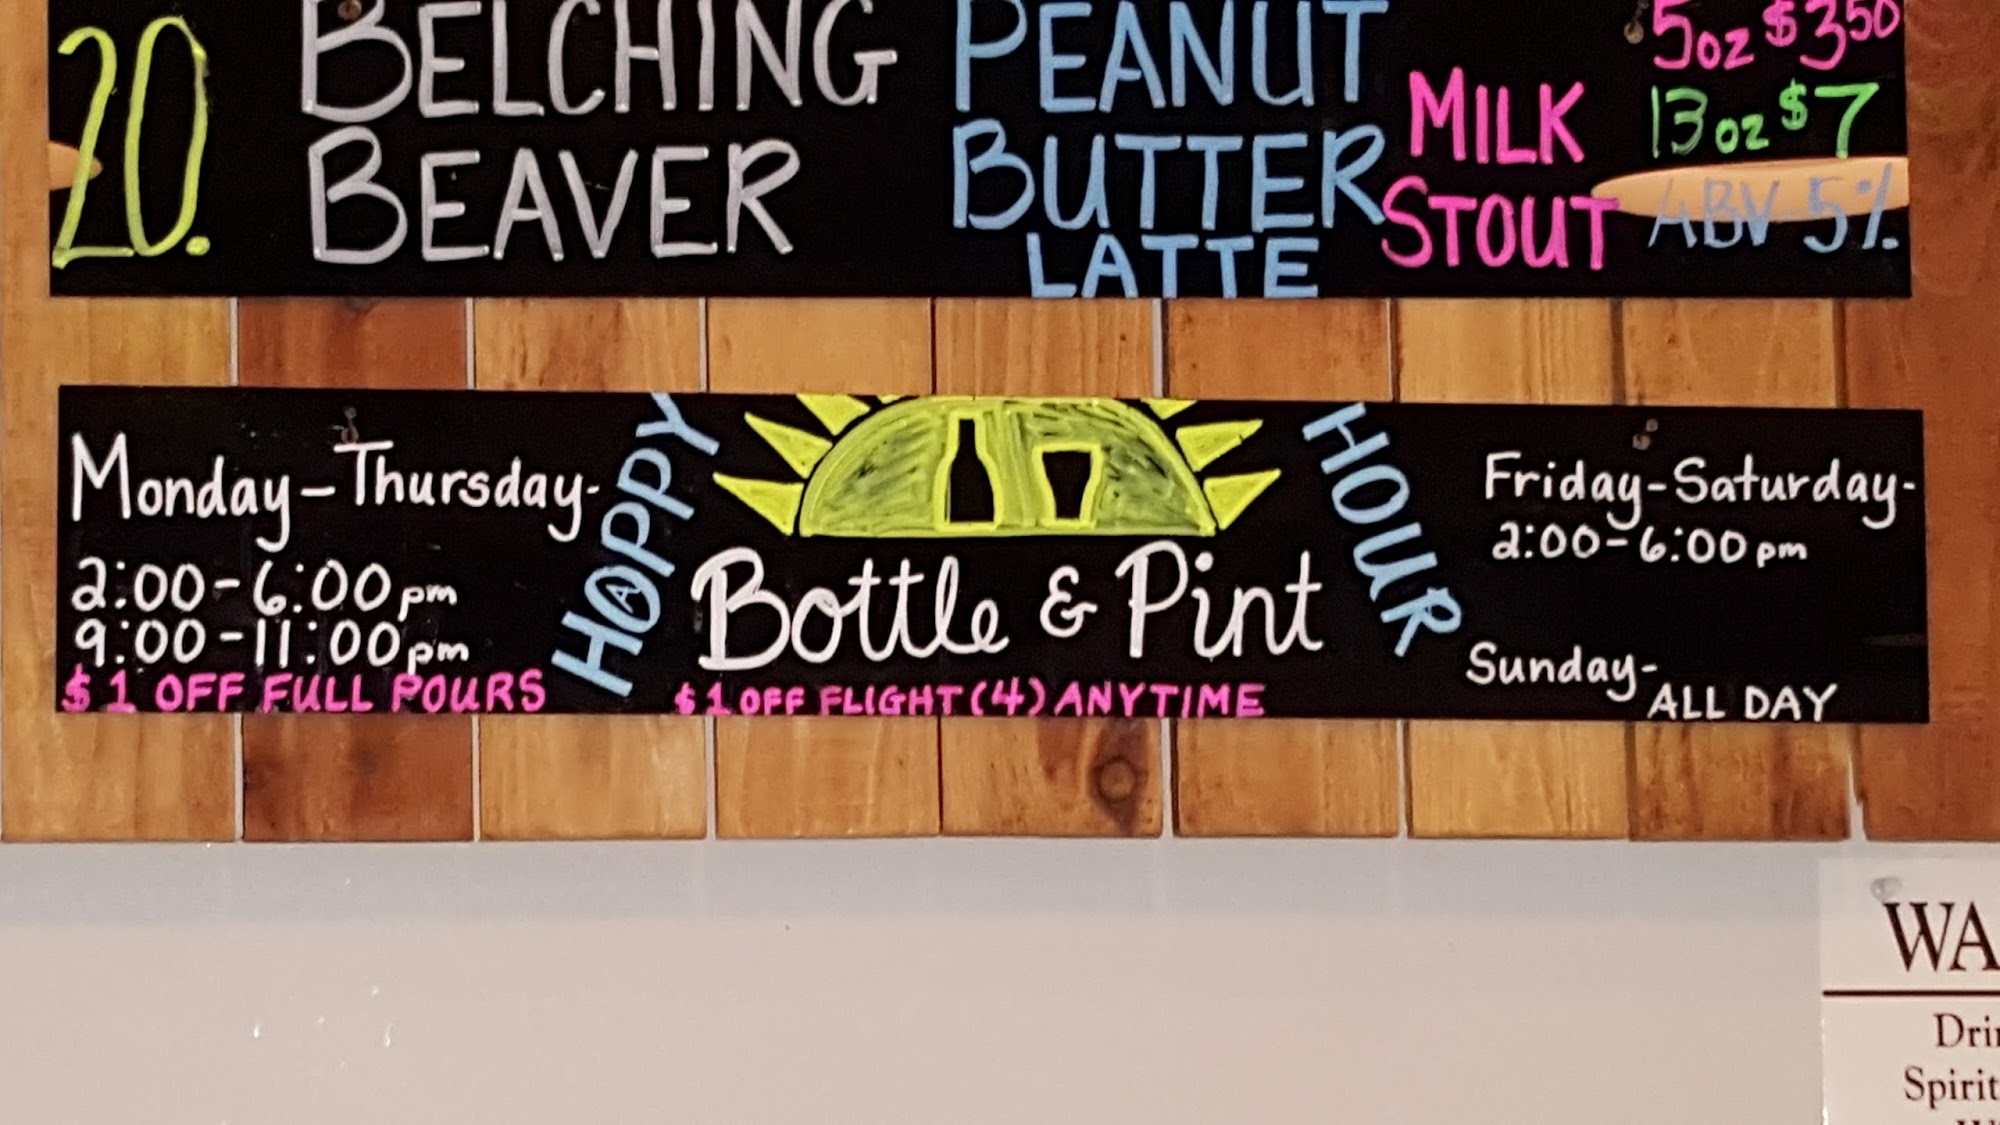 20.
BELCHING
BEAVER
PEANUT
BUTTER
LATTE
MILK
STOUT
5oz $3.50
13oz $7
ABV 5%
Monday-Thursday-
2:00-6:00pm
9:00-11:00pm
$1 OFF FULL POURS
HOPPY
HOUR
Bottle & Pint
$1 OFF FLIGHT (4) ANYTIME
Friday-Saturday-
2:00-6:00pm
Sunday-
ALL DAY
WA
Dri
Spirit